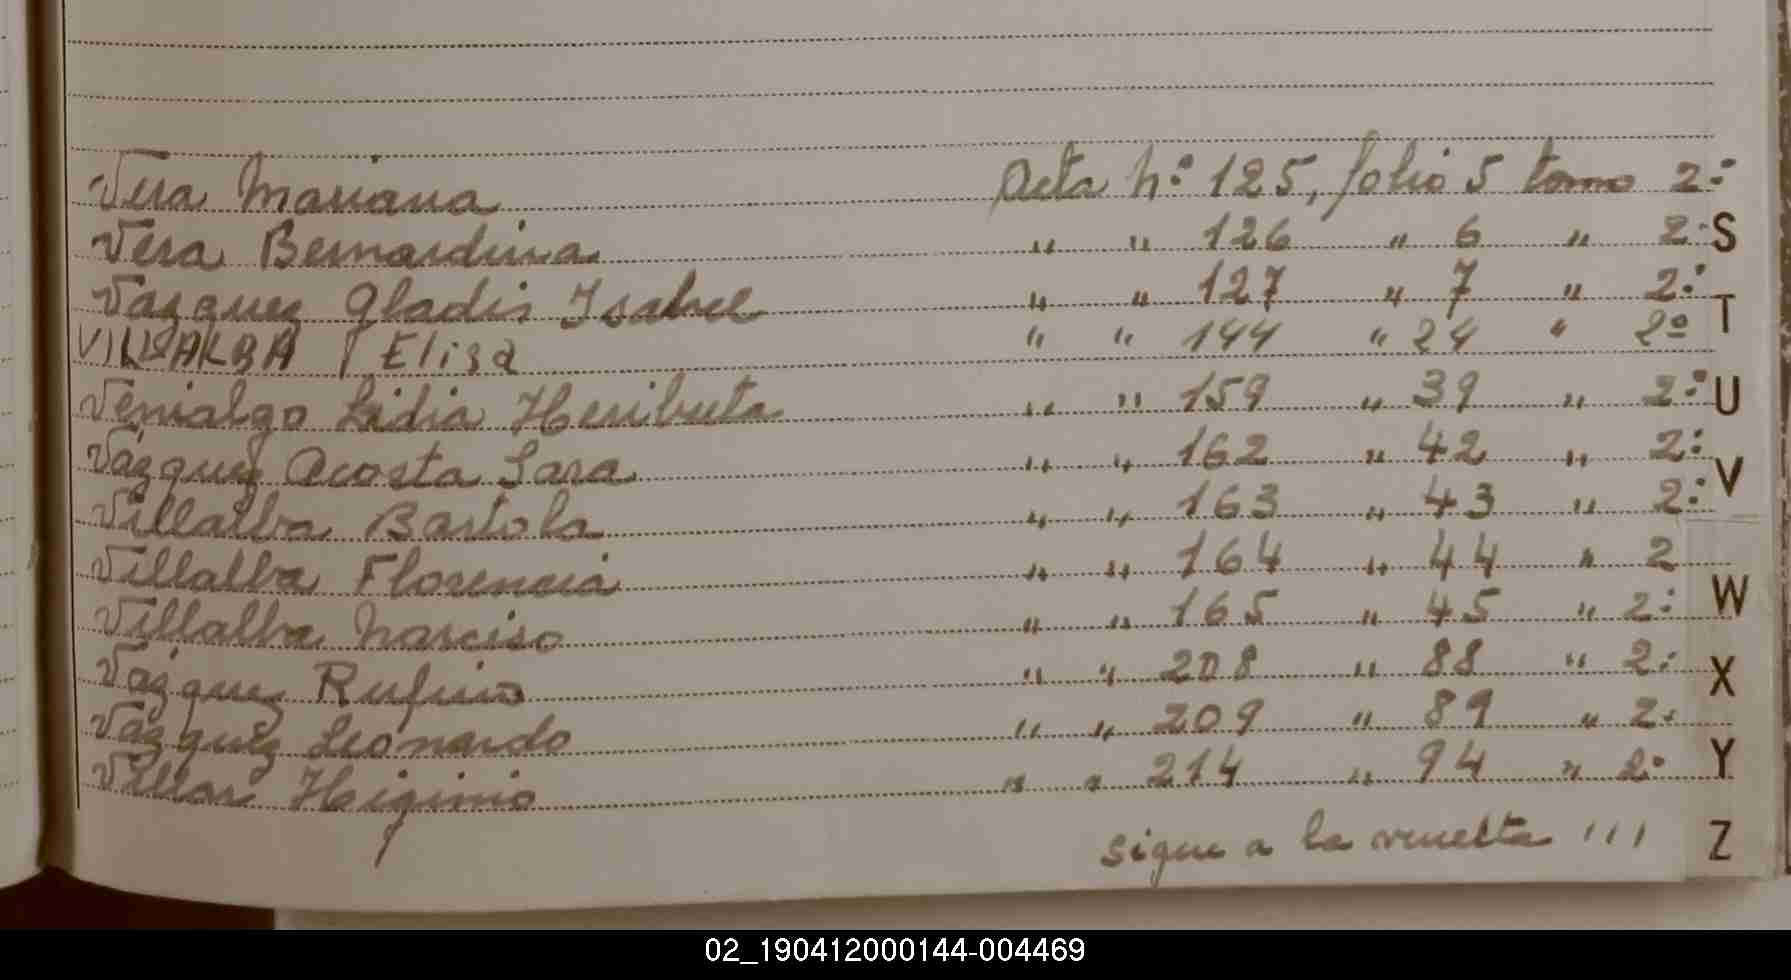 Vera Mariana Acta Nº 125, folio 5 tomo 2º
Vera Bernardina " " 126 " 6 " 2º
Vazquez Gladis Isabel " " 127 " 7 " 2º
VILLALBA Elisa " " 144 " 24 " 2º
Venialgo Lidia Heriberta " " 159 " 39 " 2º
Vázquez Acosta Sara " " 162 " 42 " 2º
Villalba Bartola " " 163 " 43 " 2º
Villalba Florencia " " 164 " 44 " 2
Villalba Narciso " " 165 " 45 " 2º
Vázquez Rufino " " 208 " 88 " 2º
Vázquez Leonardo " " 209 " 89 " 2º
Villar Higinio " " 214 " 94 " 2º
sigue a la vuelta !!!
S
T
U
V
W
X
Y
Z
02_190412000144-004469